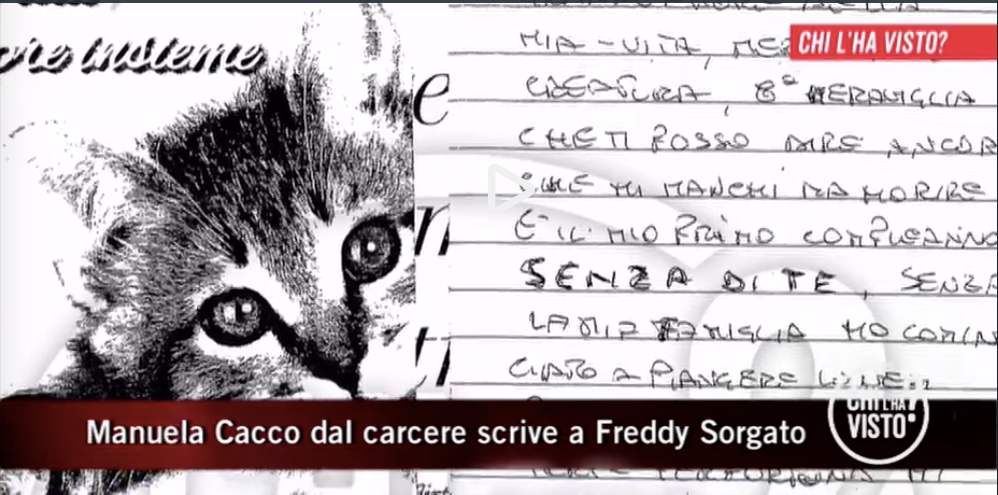 insieme
CHI L'HA VISTO?
MIA - VITA, ME
CREATURA, 8ª MERAVIGLIA
CHE TI POSSO DIRE ANCOR
CHE MI MANCHI DA MORIRE
È IL MIO PRIMO COMPLEANNO
SENZA DI TE, SENZA
LA MIA FAMIGLIA HO COMIN
CIATO A PIANGERE
Manuela Cacco dal carcere scrive a Freddy Sorgato
CHI L'HA
VISTO?